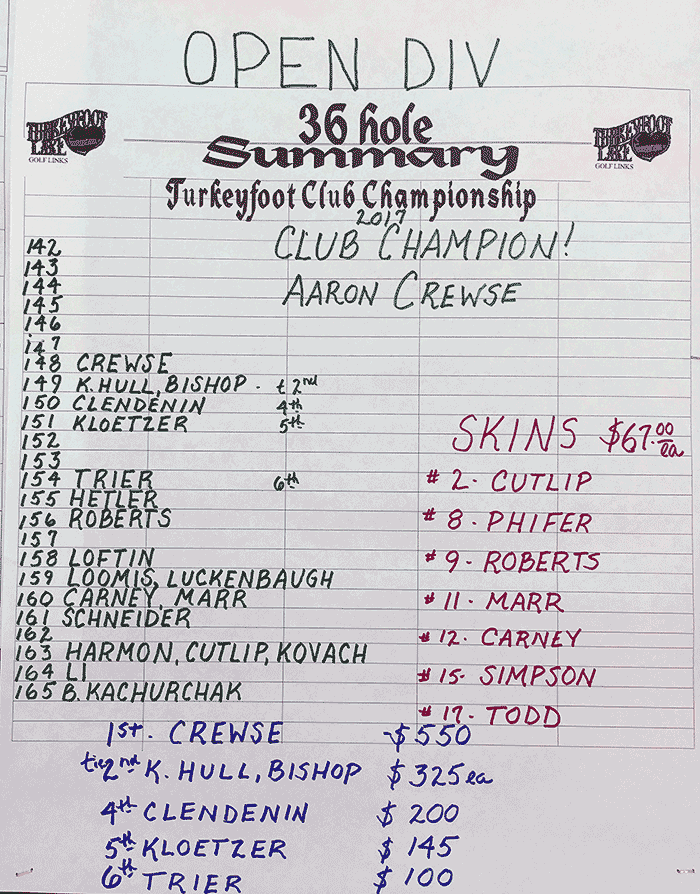 OPEN DIV
TURKEYFOOT LAKE GOLF LINKS
36 hole
Summary
TURKEYFOOT LAKE GOLF LINKS
Turkeyfoot Club Championship
2017
CLUB CHAMPION!
AARON CREWSE
142
143
144
145
146
147
148 CREWSE
149 K. HULL, BISHOP - t 2nd
150 CLENDENIN 4th
151 KLOETZER 5th
152
153
154 TRIER 6th
155 HETLER
156 ROBERTS
157
158 LOFTIN
159 LOOMIS, LUCKENBAUGH
160 CARNEY, MARR
161 SCHNEIDER
162
163 HARMON, CUTLIP, KOVACH
164 LI
165 B. KACHURCHAK
SKINS $67.00 ea
# 2 - CUTLIP
# 8 - PHIFER
# 9 - ROBERTS
# 11 - MARR
# 12 - CARNEY
# 15 - SIMPSON
# 17 - TODD
1st - CREWSE - $550
tie 2nd K. HULL, BISHOP $325 ea
4th CLENDENIN $200
5th KLOETZER $145
6th TRIER $100